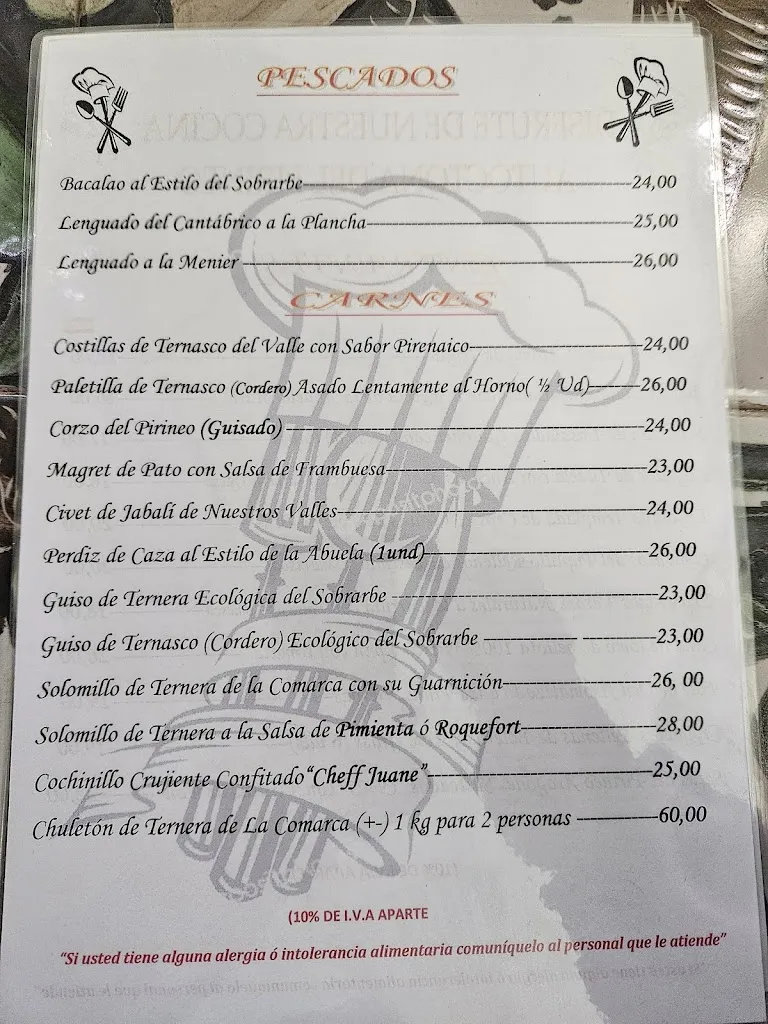 PESCADOS
Bacalao al Estilo del Sobrarbe 24,00
Lenguado del Cantábrico a la Plancha 25,00
Lenguado a la Menier 26,00
CARNES
Costillas de Ternasco del Valle con Sabor Pirenaico 24,00
Paletilla de Ternasco (Cordero) Asado Lentamente al Horno( ½ Ud) 26,00
Corzo del Pirineo (Guisado) 24,00
Magret de Pato con Salsa de Frambuesa 23,00
Civet de Jabalí de Nuestros Valles 24,00
Perdiz de Caza al Estilo de la Abuela (1und) 26,00
Guiso de Ternera Ecológica del Sobrarbe 23,00
Guiso de Ternasco (Cordero) Ecológico del Sobrarbe 23,00
Solomillo de Ternera de la Comarca con su Guarnición 26, 00
Solomillo de Ternera a la Salsa de Pimienta ó Roquefort 28,00
Cochinillo Crujiente Confitado "Cheff Juane" 25,00
Chuletón de Ternera de La Comarca (+-) 1 kg para 2 personas 60,00
(10% DE I.V.A APARTE
"Si usted tiene alguna alergia ó intolerancia alimentaria comuníquelo al personal que le atiende"